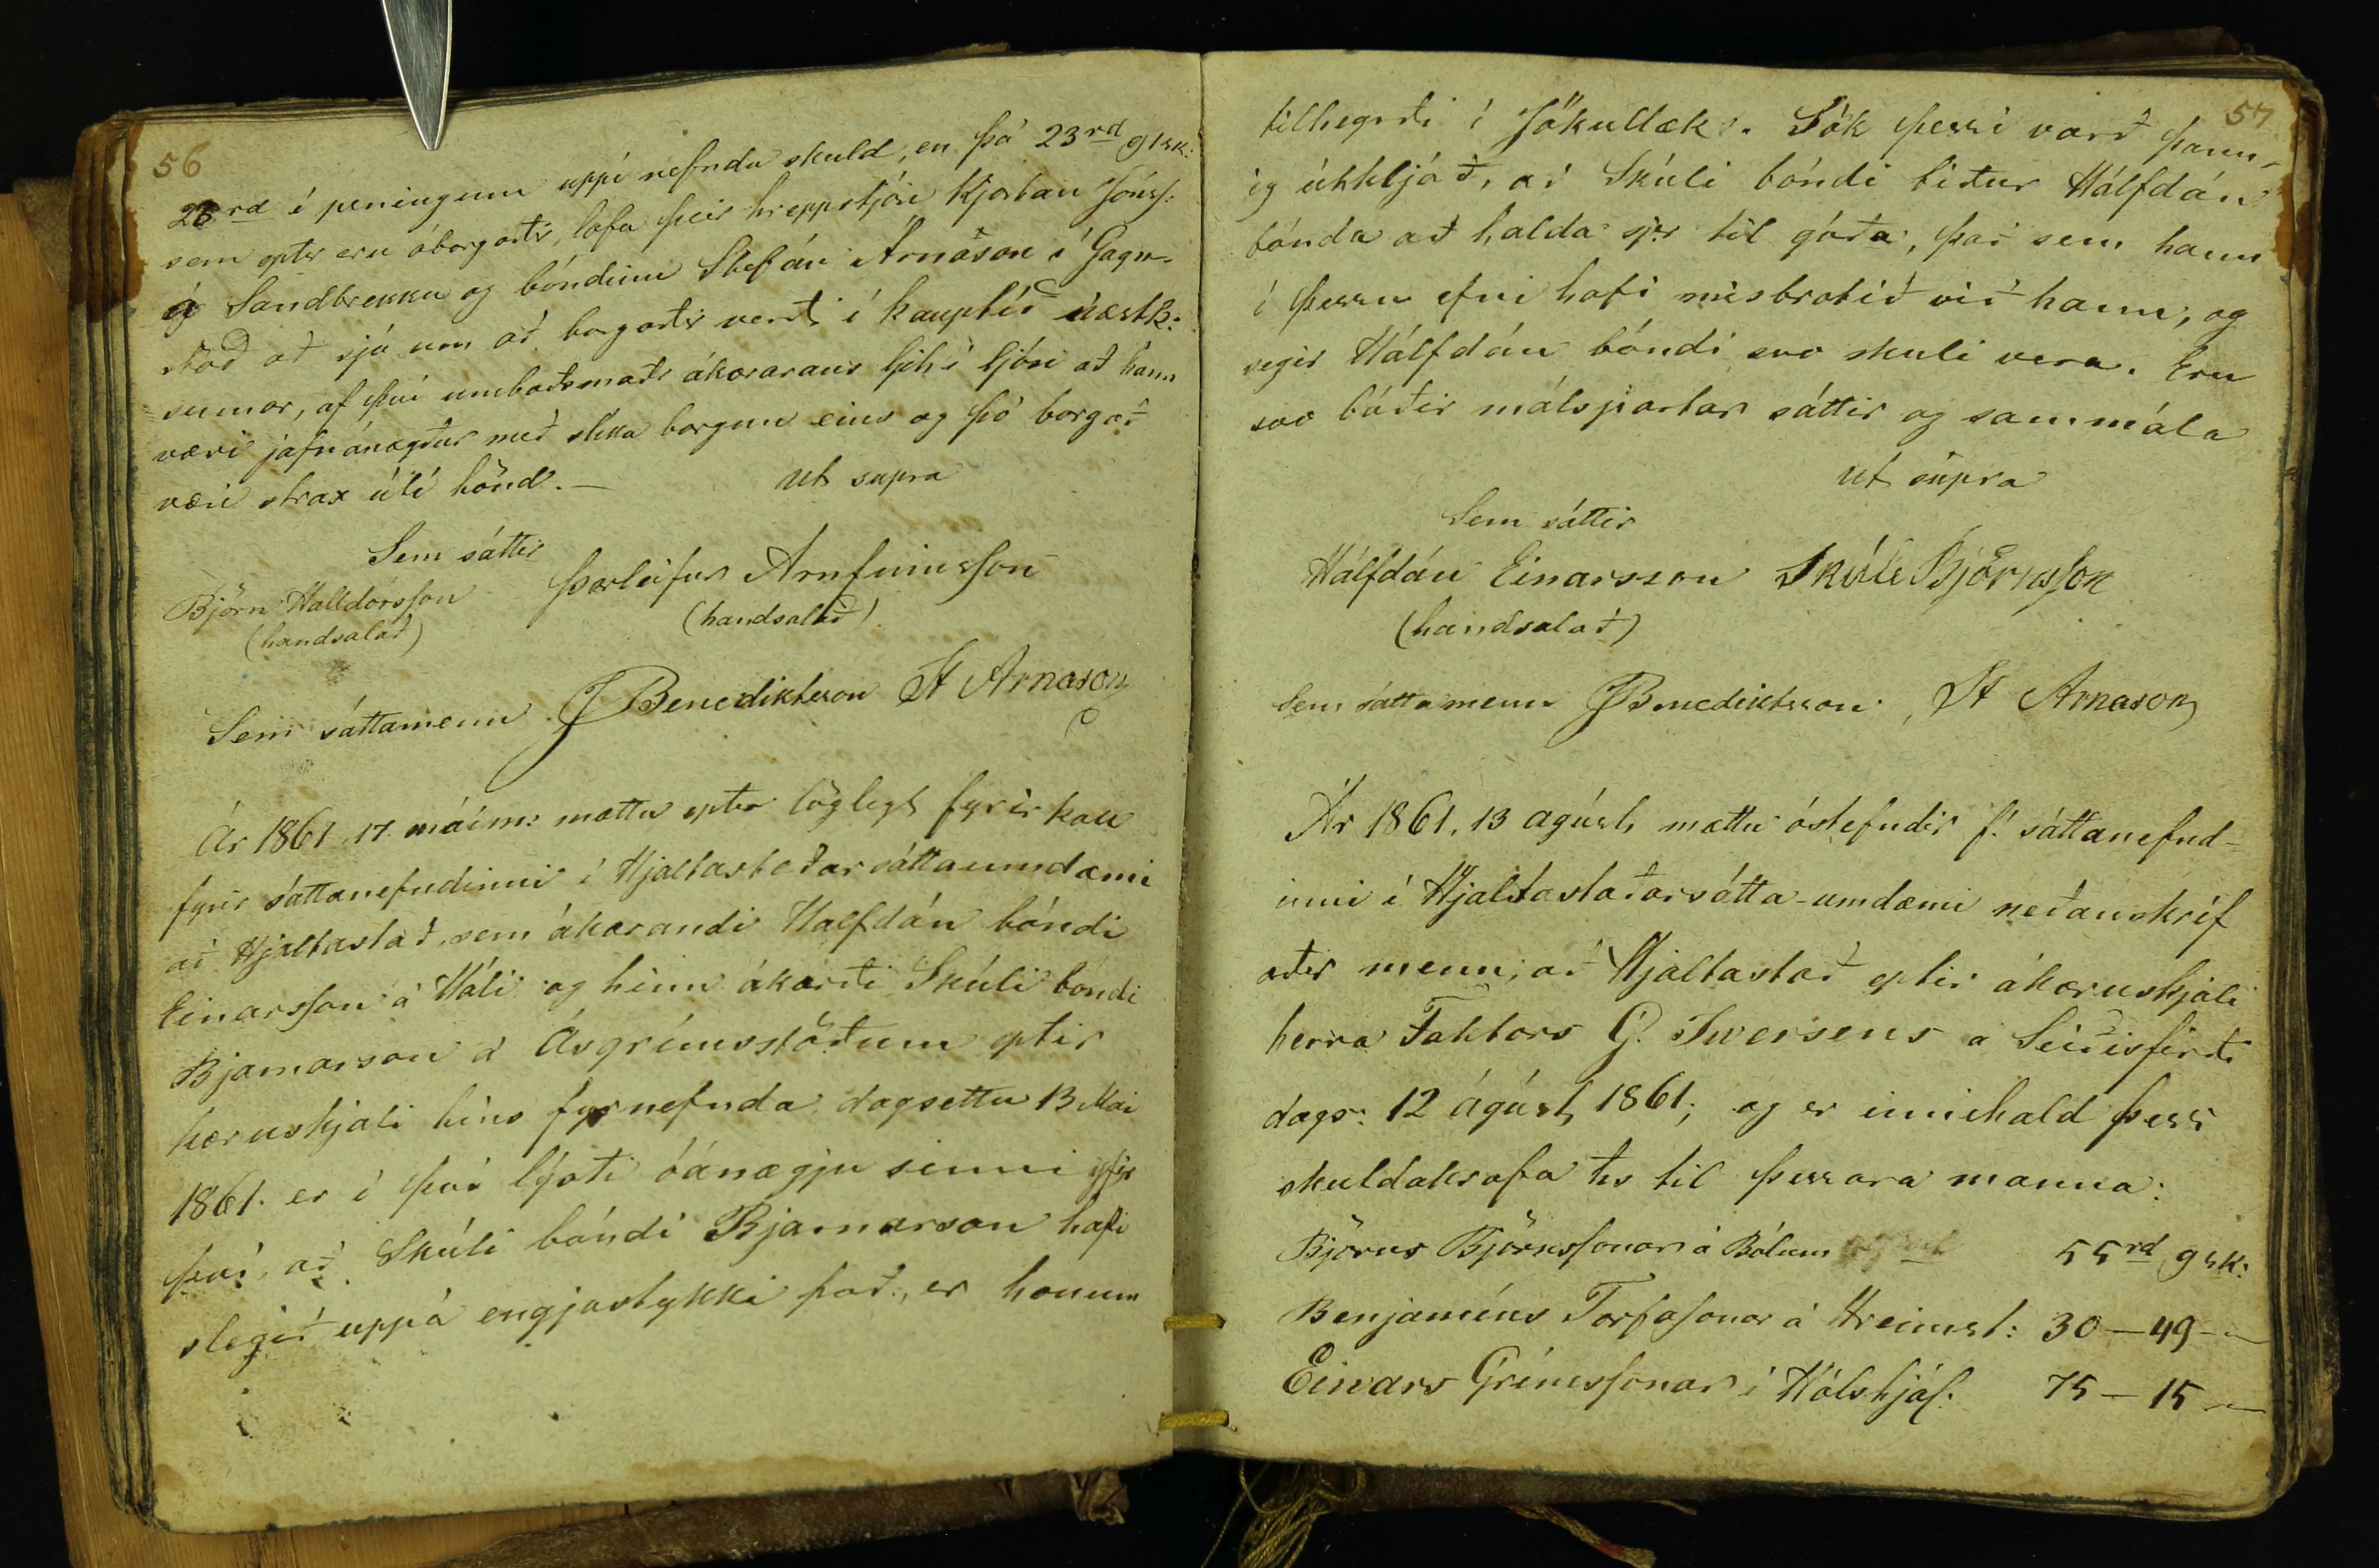 56
23rd í peningum uppí nefnda skuld, en þá 23rd 91sk:
sem eptir eru óborgaðir, lofa þeir hreppstjóri Kjartan Jónss:
á Sandbrekku og bóndinn Stefán Árnason í Gagn-
stöð að sjá um að borgaðir verði í kauptíð næstk:
sumar, af því umboðsmaðr ákærarans ljet í ljósi að hann
væri jafnánægður með slíka borgun eins og þó borgað
væri strax útí hönd. — ut supra
Sem sáttir
Björn Halldórsson Þorleifur Arnfinnsson
(handsalað) (handsalað)
Sem sáttamenn J Benediktsson St Arnason
Ár 1861 17. máím: mættu eptir löglegt fyrirkall
fyrir sáttanefndinni í Hjaltastaðar sáttaumdæmi
að Hjaltastað, sem ákærandi Halfdán bóndi
Einarsson á Hóli og hinn ákærði Skúli bóndi
Bjarnarson á Ásgrímsstöðum eptir
kæruskjali hins fyrnefnda, dagsettu 13 Mai
1861. er í því lýsti óánægju sinni yfir
því, að Skúli bóndi Bjarnarson hafi
slegið uppá engjastykki það, er honum
57
tilheyrði í Jökullæk. Sök þessi varð þann-
ig útkljáð, að Skúli bóndi biður Hálfdán
bónda að halda sjer til góða, það sem hann
í þessu efni hafi misbrotið við hann, og
segir Hálfdán bóndi svo skuli vera. Eru
svo báðir málspartar sáttir og sammála
ut supra
Sem sáttir
Hálfdán Einarsson Skúli Björnsson
(handsalað)
Sem sáttamenn JBenediktsson, St Arnason
Ár 1861, 13 agúst, mættu óstefndir f. sáttanefnd-
inni í Hjaltastaðarsátta-umdæmi neðanskrif
aðir menn, að Hjaltastað eptir ákæruskjali
herra Faktors G. Iwersens a Seiðisfirði
dags: 12 ágúst, 1861; og er innihald þess
skuldakrafa hs til þessara manna:
Björns Björnssonar á Bólum 55rd 9sk:
Benjamíns Torfasonar á Hreimst: 30 — 49 —
Einars Grímssonar í Hólshjál: 75 — 15 —